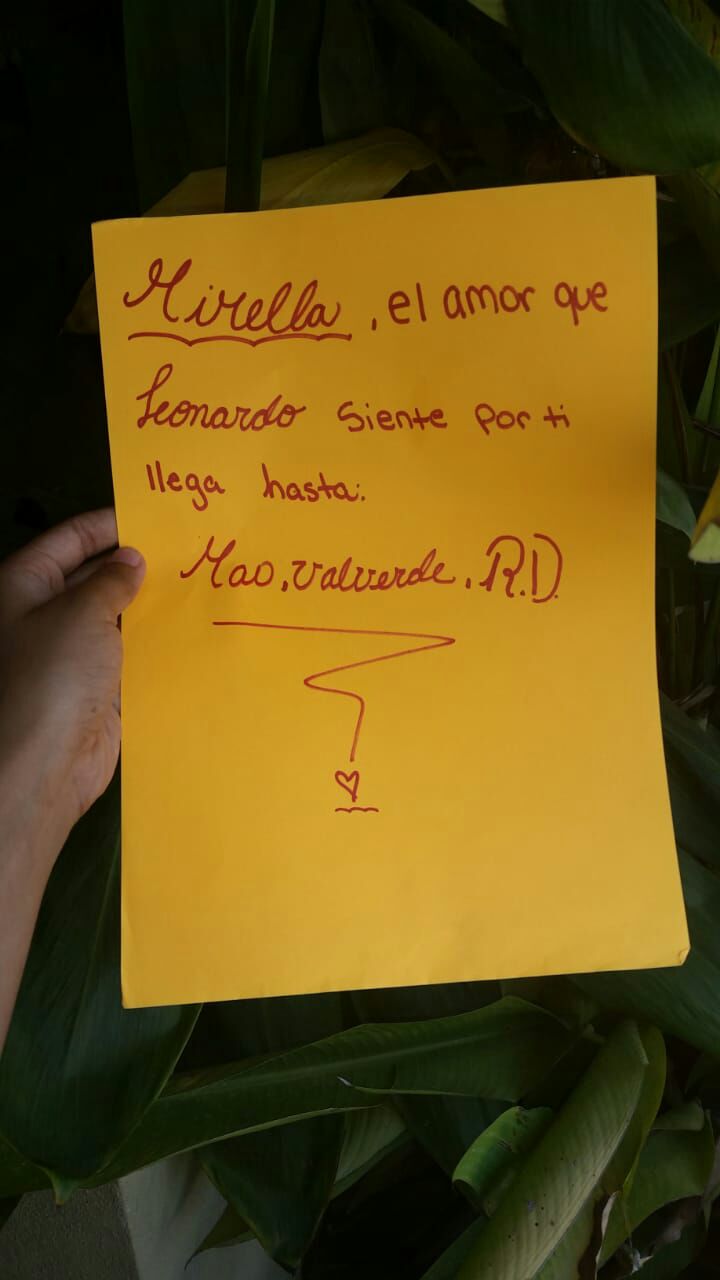 Mirella, el amor que
Leonardo siente por ti
llega hasta:
Mao, Valverde, R.D.